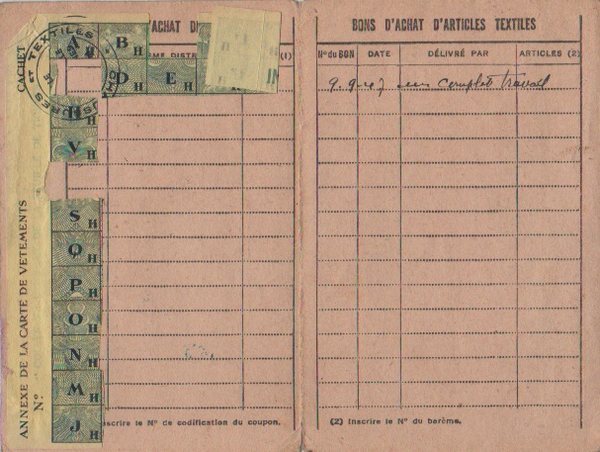 D'ACHAT D
BONS D'ACHAT D'ARTICLES TEXTILES
DISTR
(1)
Nº du BON DATE DÉLIVRÉ PAR ARTICLES (2)
9.9.47 un complet travail
CACHET
ANNEXE DE LA CARTE DE VETEMENTS
Nº
TEXTILES
A H
B H
D H
E H
H
V H
S H
Q H
P H
O H
N H
M H
J H
nscrire le Nº de codification du coupon.
(2) Inscrire le Nº du barème.